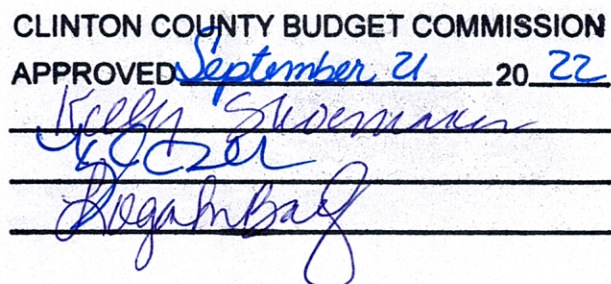 CLINTON COUNTY BUDGET COMMISSION
APPROVED September 21 20 22
Kelly Shoemaker